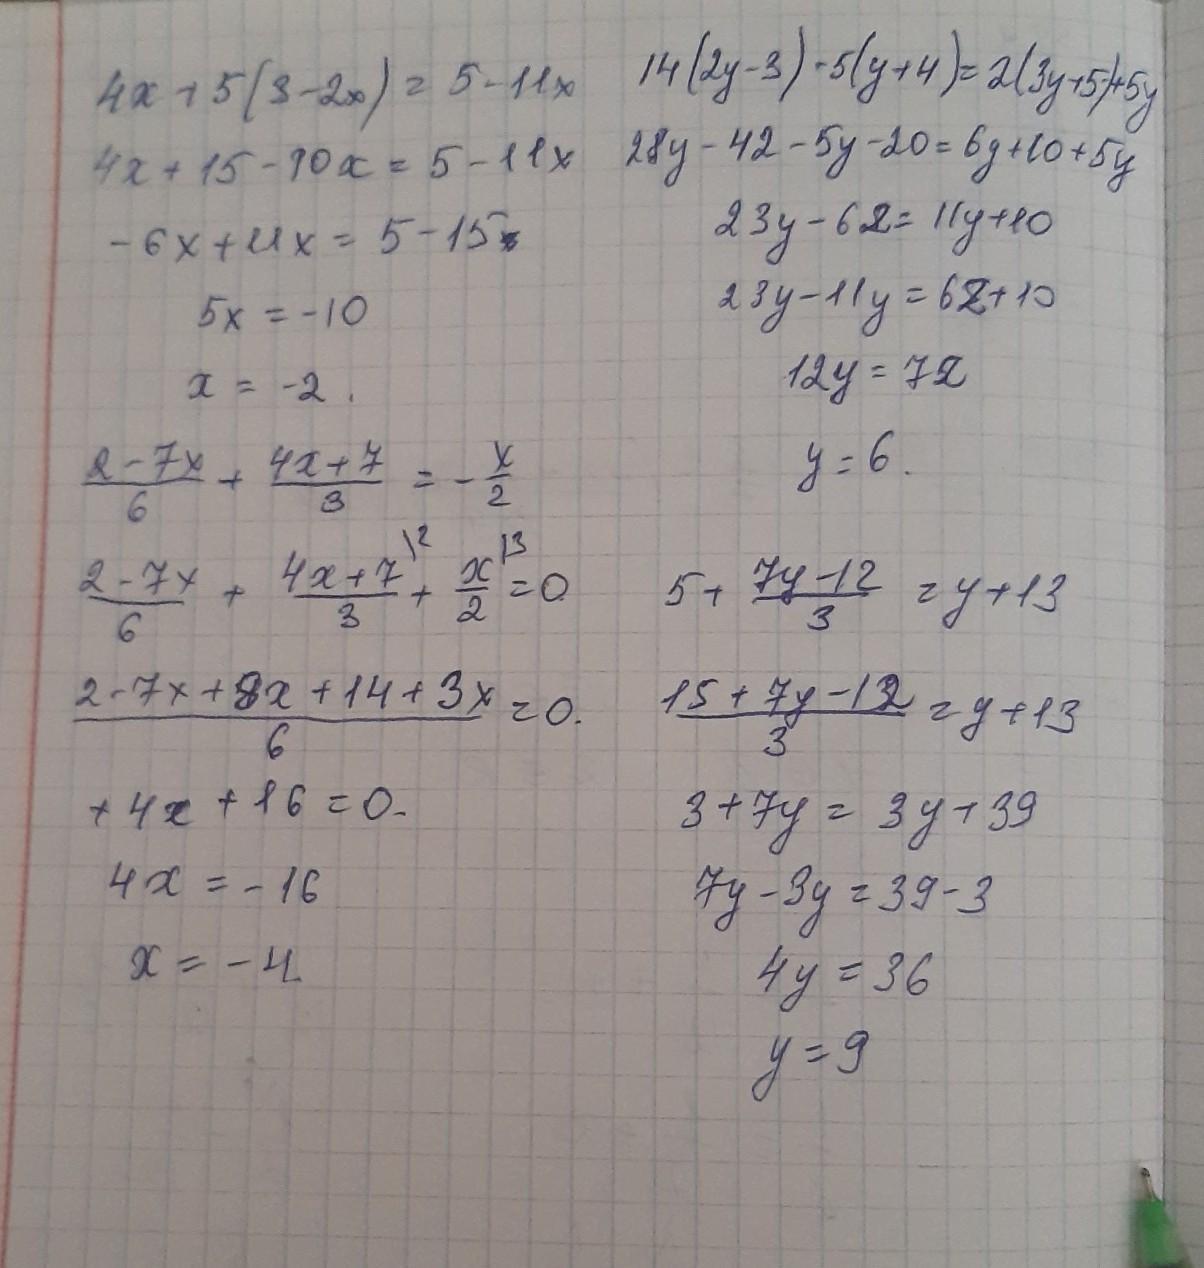 4x + 5(3 - 2x) = 5 - 11x
4x + 15 - 10x = 5 - 11x
- 6x + 11x = 5 - 15
5x = -10
x = -2.
\frac{2 - 7x}{6} + \frac{4x + 7}{3} = -\frac{x}{2}
\frac{2 - 7x}{6} + \frac{4x + 7}{3}^{\2} + \frac{x}{2}^{|3} = 0
\frac{2 - 7x + 8x + 14 + 3x}{6} = 0.
+ 4x + 16 = 0.
4x = -16
x = -4
14(2y - 3) - 5(y + 4) = 2(3y + 5) + 5y
28y - 42 - 5y - 20 = 6y + 10 + 5y
23y - 62 = 11y + 10
23y - 11y = 62 + 10
12y = 72
y = 6.
5 + \frac{7y - 12}{3} = y + 13
\frac{15 + 7y - 12}{3} = y + 13
3 + 7y = 3y + 39
7y - 3y = 39 - 3
4y = 36
y = 9